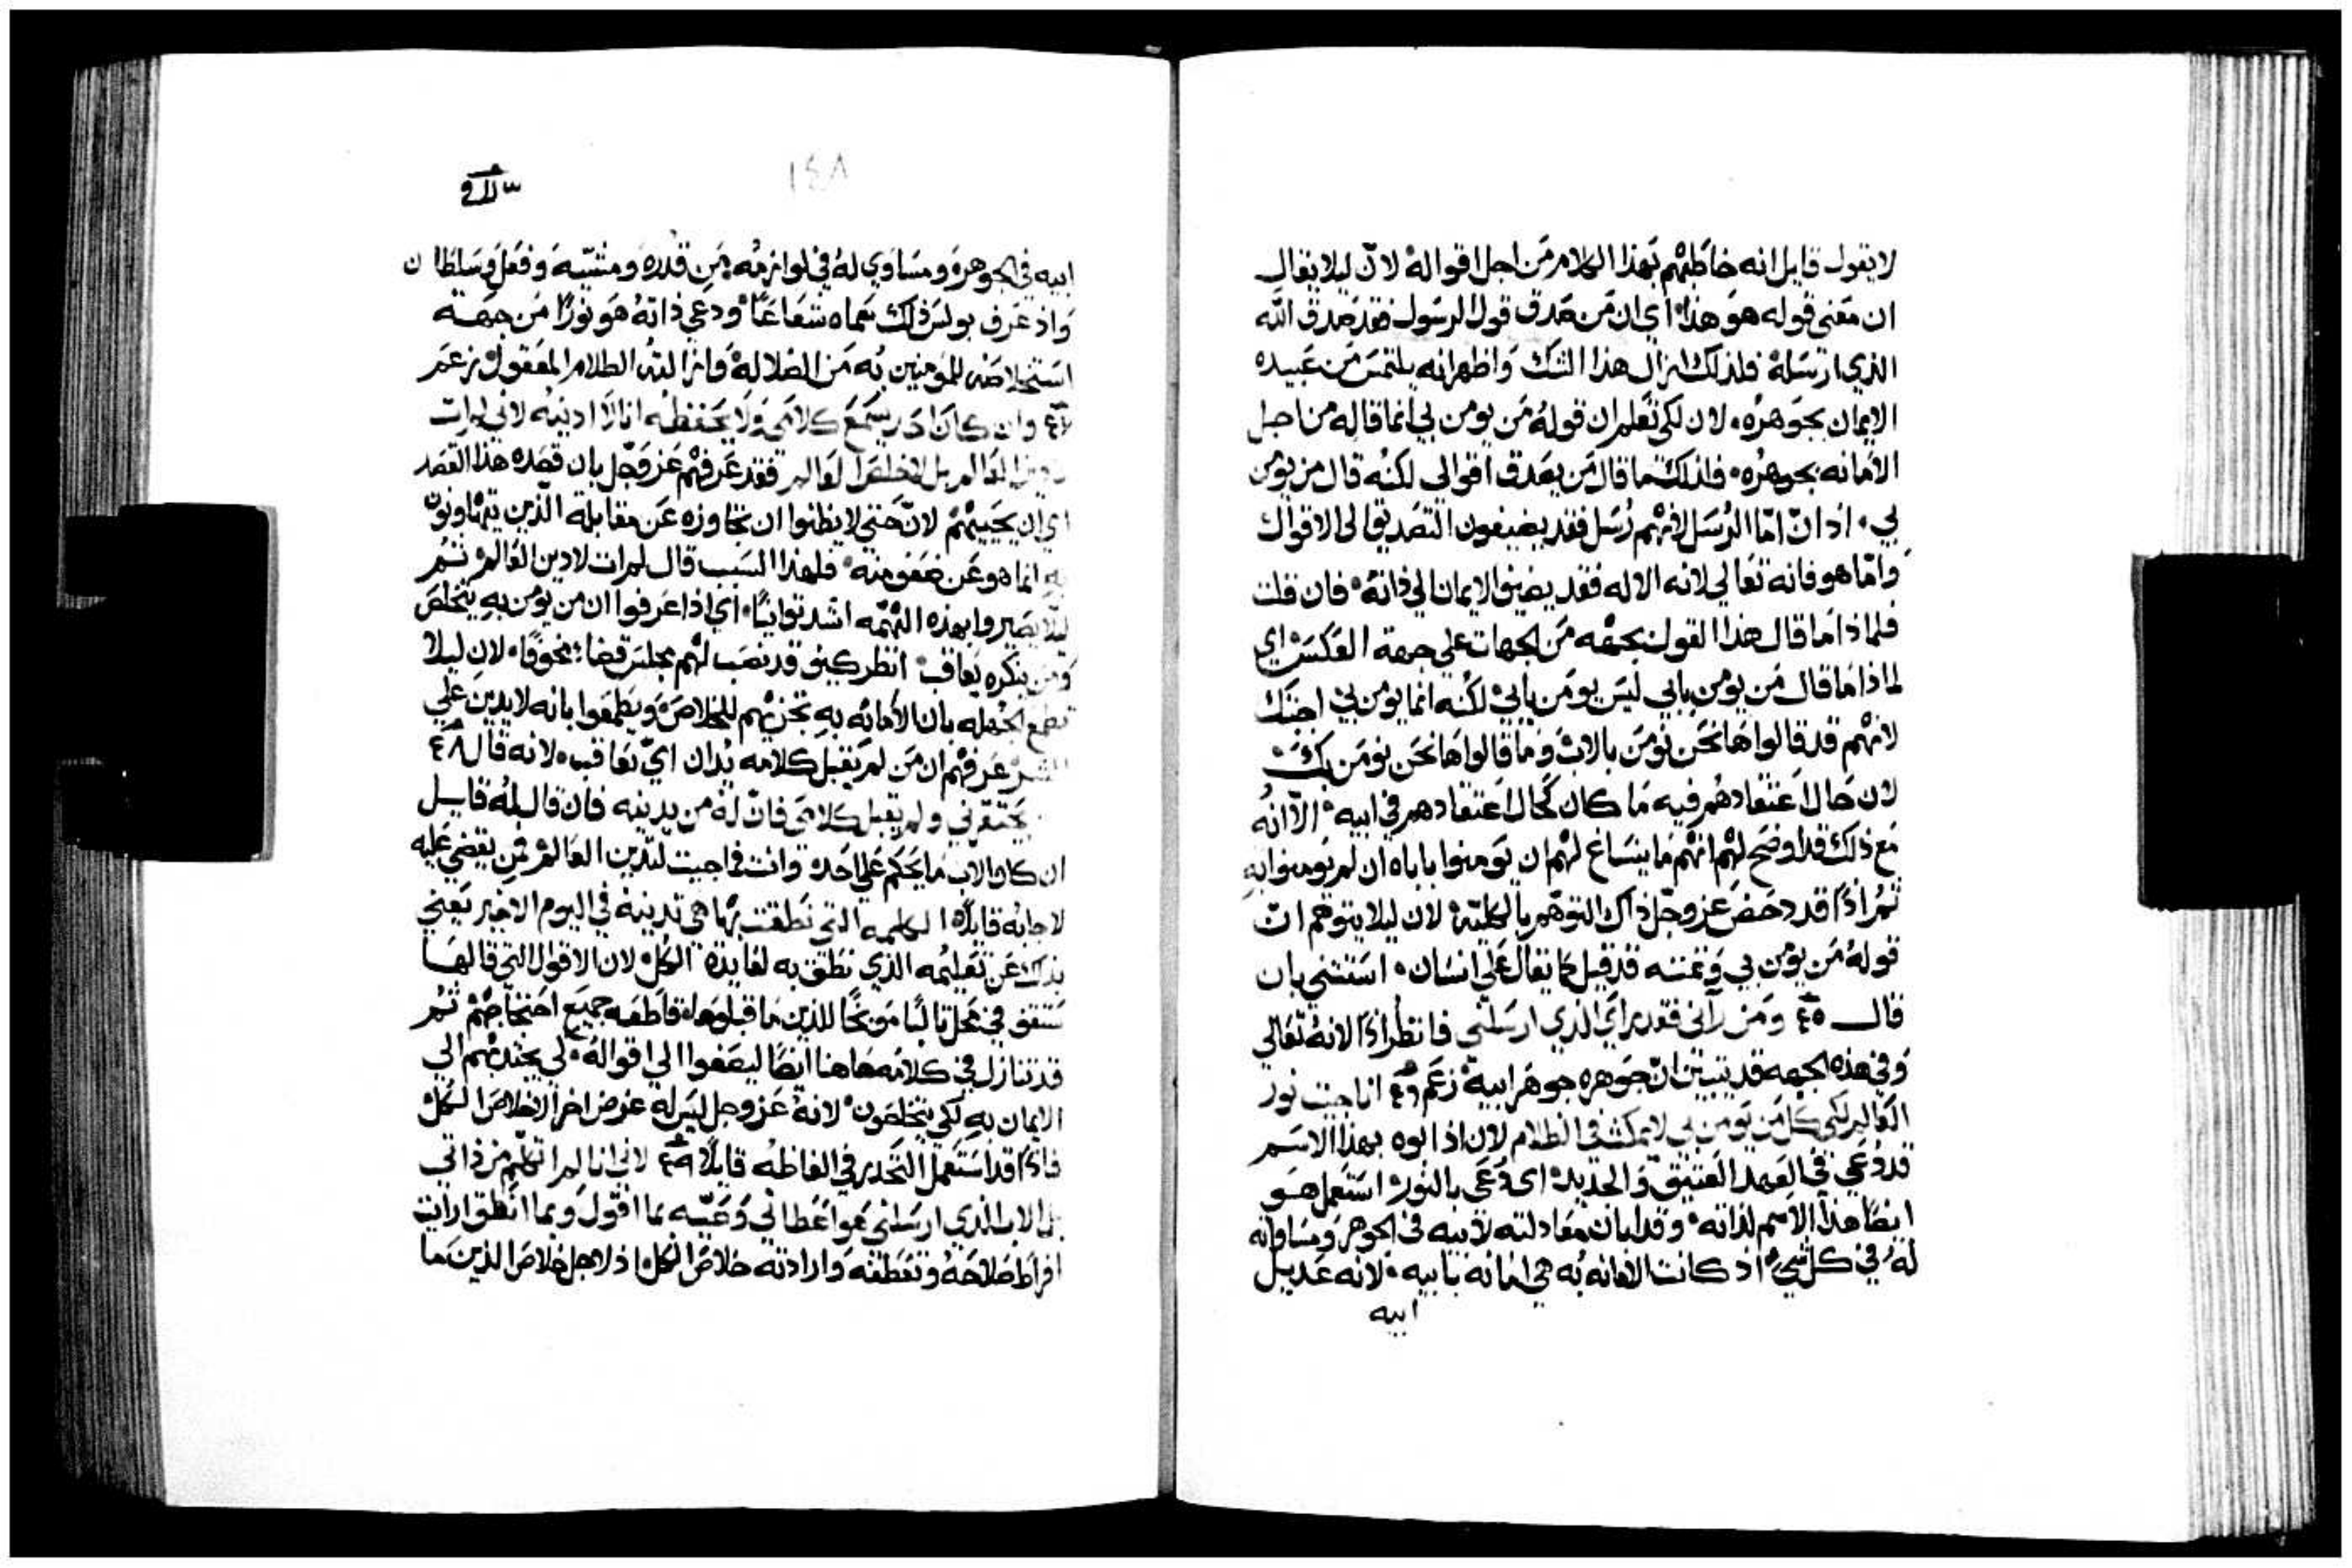 لا يقول قايل انه خاطبهم بهذا الكلام من اجل اقواله لان ليلا يقال
ان معني قوله هو هذا اي ان من صدق قول الرسول فقد صدق الله
الذي ارسله فلذلك ازال هذا الشك واظهر انه يلتمس من عبيده
الايمان بجوهره لان لكي تعلم ان قوله من يومن بي انما قاله من اجل
الامانه بجوهره فلذلك ما قال من يصدق اقوالي لكنه قال من يومن
بي اذ ان امّا الرسل لانهم رسل فقد يضيفون التصديق الي الاقوال
وامّا هو فانه تعالي لانه الاله فقد يضيف الايمان الي ذاته فان قلت
فلماذا ما قال هذا القول بجهه من الجهات علي جهة العكس اي
لماذا ما قال من يومن بابي ليس يومن بابي لكنه انما يومن بي اجبتك
لانهم قد قالوا ها نحن نومن بالاب وما قالوا ها نحن نومن بك
لان حال اعتقادهم فيه ما كان كحال اعتقادهم في ابيه الا انه
مع ذلك قد اوضح لهم انهم ما ينساغ لهم ان يومنوا باباه ان لم يومنوا به
ثم اذًا قد دحض عز وجل ذاك التوهم بالكلية لان ليلا يتوهم ان
قوله من يومن بي قد قيل كما يقال علي انسان استثني بان
قال ٤٥ ومن رآني فقد راي الذي ارسلني فانظر اذًا لانه تعالي
وفي هذه الجهه قد تبين ان جوهره جوهر ابيه زعم ٤٦ انا جيت نور
العالم لكي كل من يومن بي لا يمكث في الظلام لان اذ ابوه بهذا الاسم
قد دعي في العهد العتيق والحديد اي دعي بالنور استعمل هو
ايضا هذا الاسم لذاته وقد ابان معادلته لابيه في الجوهر ومساواته
له في كل شي اذ كانت الامانه به هي امانه بابيه لانه عديل
ابيه
١٤٨
ابيه في الجوهر ومساوي له في لوازمه من قدره ومشيّه وفعل وسلطان
واذ عرف بولس ذلك سماه شعاعًا ودعي ذاته هو نورًا من جهة
استخلاصه للمومنين به من الضلاله وازالته الظلام المعقول زعم
٤٧ وان كان احد يسمع كلامي ولا يحفظه انا لا ادينه لاني لم ات
لادين العالم بل لاخلص العالم فقد عرفهم عز وجل بان قصده هذا القصد
اي ان يحييهم لان حتي لا يظنوا ان تجاوزه عن مقابلة الذين يتهاونون
به انما هو عن ضعف منه فلهذا السبب قال لم ات لادين العالم ثم
ليلا يصيروا بهذه التهمه اشد توانيًا اي اذا عرفوا ان من يومن به يتخلص
ومن ينكره يعاقب انظر كيف قد نصب لهم مجلس قضا مخوفًا لان ليلا
تطمع الجهله بان الامانه به تجزيهم للخلاص ويطمعوا بانه لا يدين علي
الشر عرفهم ان من لم يقبل كلامه يدان اي يعاقب لانه قال ٤٨
من يحتقرني ولم يقبل كلامي فان له من يدينه فان قال له قايل
ان كان الاب ما يحكم علي احد وانت ما جيت لتدين العالم فمن يقضي عليه
لاجابه قايلًا الكلمه التي نطقت بها هي تدينه في اليوم الاخير يعني
بذلك عن تعليمه الذي نطق به لفايدة الكل لان الاقوال التي قالها
ستقف في محل ثالبًا موبخًا للذين ما قبلوها قاطعه جميع احتجاجهم ثم
قد تنازل في كلامه هاهنا ايضا ليصغوا الي اقواله لكي يجتذبهم الي
الايمان به لكي يتخلصون لانه عز وجل ليس له غرض اخر الا خلاص الكل
فاذًا قد استعمل التحدير في الفاظه قايلًا ٤٩ لاني انا لم اتكلم من ذاتي
بل الاب الذي ارسلني هو اعطاني وصيه بما اقول وبما انطق ارايت
افراط صلاحه وتعطفه وارادته خلاص الكل اذ لاجل خلاص الذين ما